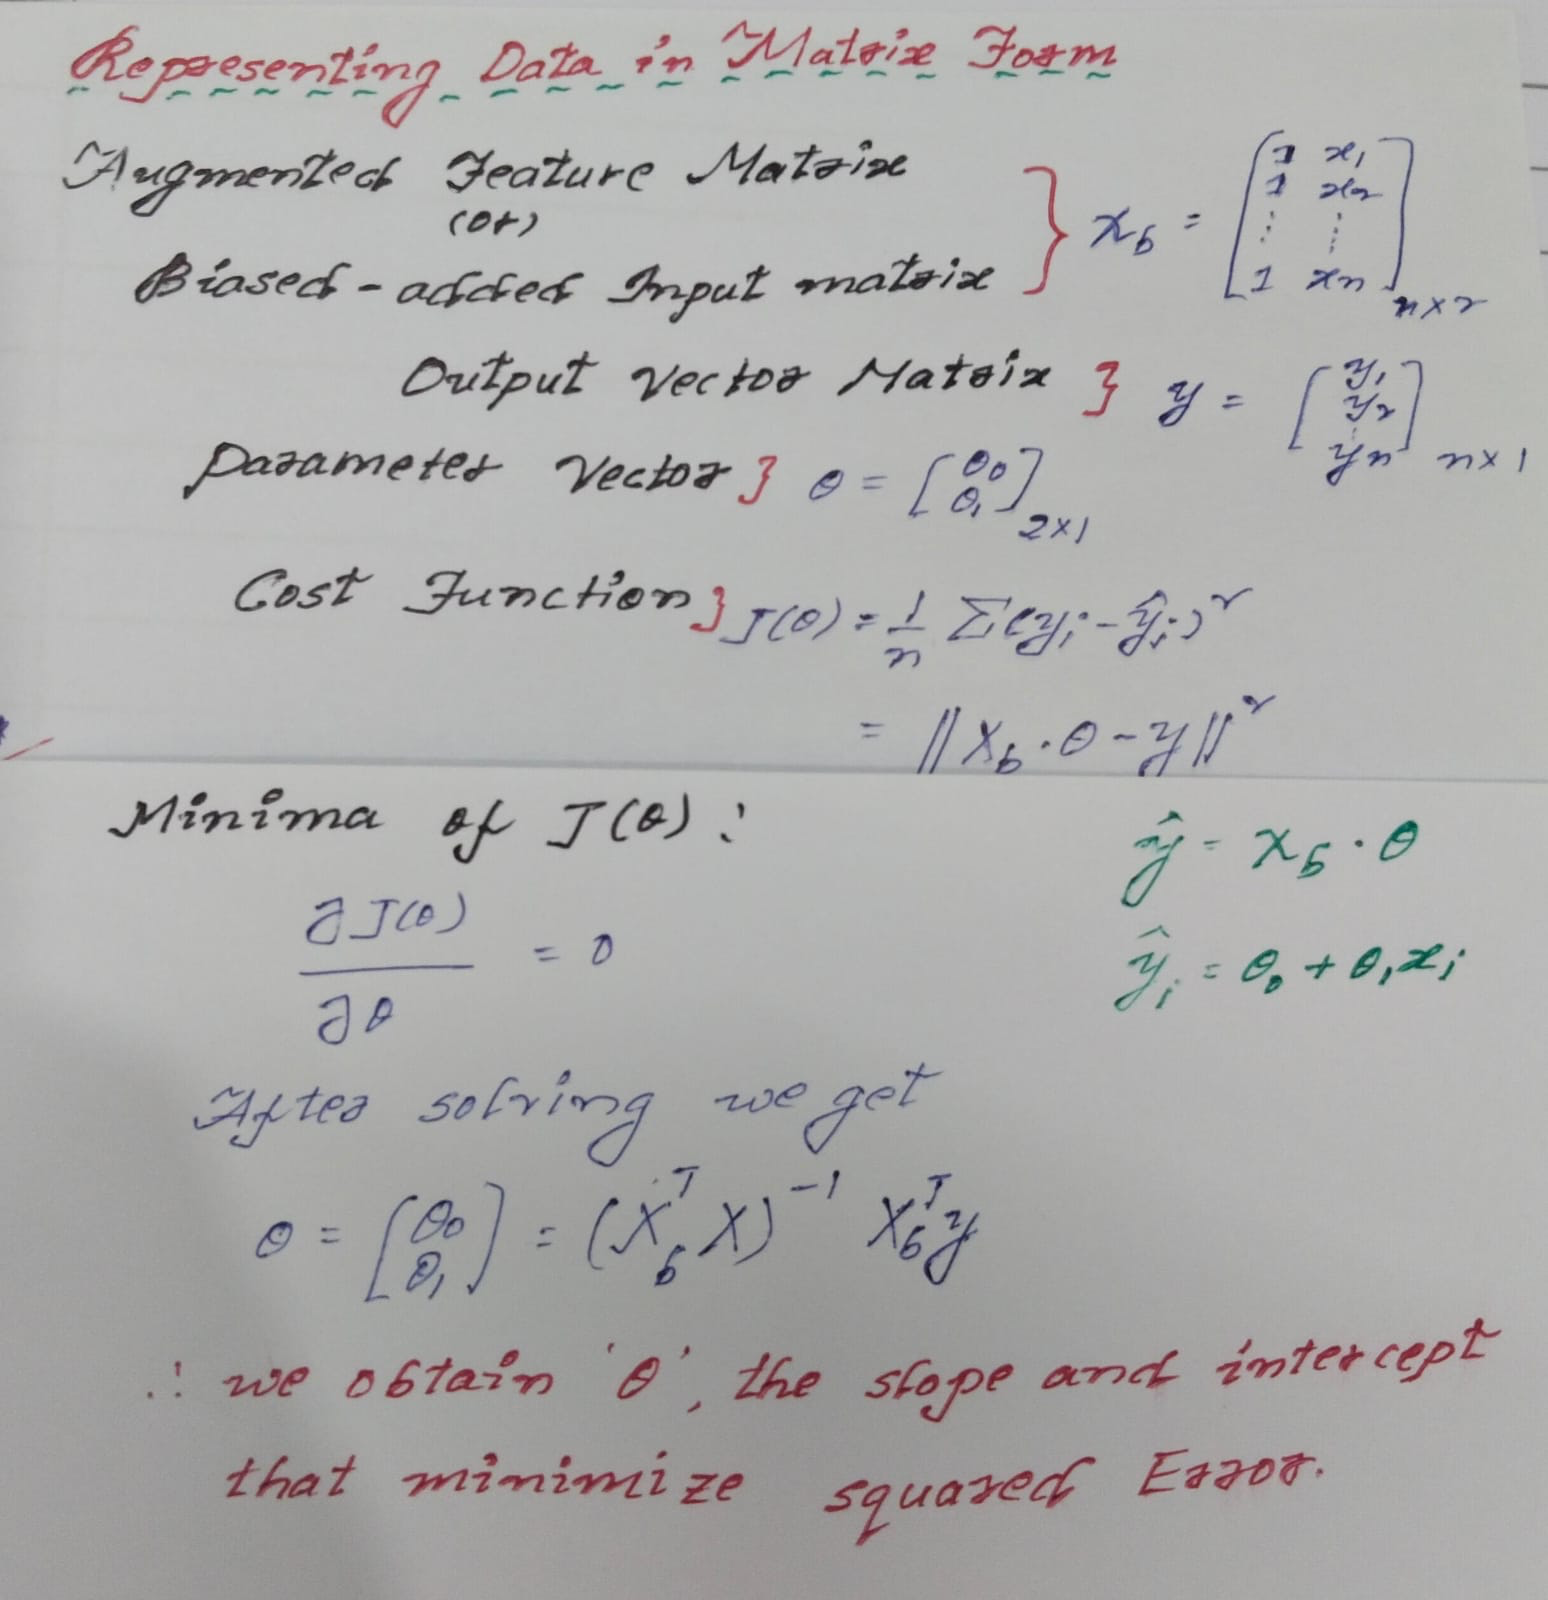 Representing Data in Matrix Form
Augmented Feature Matrix
(or)
Biased-added Input matrix } X_b = [1 x₁; 1 x₂; ⋮ ⋮; 1 xₙ] n×2
Output Vector Matrix } y = [y₁; y₂; ⋮; yₙ] n×1
Parameter Vector } θ = [θ₀; θ₁] 2×1
Cost Function } J(θ) = 1/n Σ(yᵢ - ŷᵢ)²
= ||X_b · θ - y||²
Minima of J(θ) :
ŷ = X_b · θ
∂J(θ)/∂θ = 0
ŷᵢ = θ₀ + θ₁xᵢ
After solving we get
θ = [θ₀; θ₁] = (X_bᵀ X)⁻¹ X_bᵀ y
∴ we obtain 'θ', the slope and intercept
that minimize squared Error.